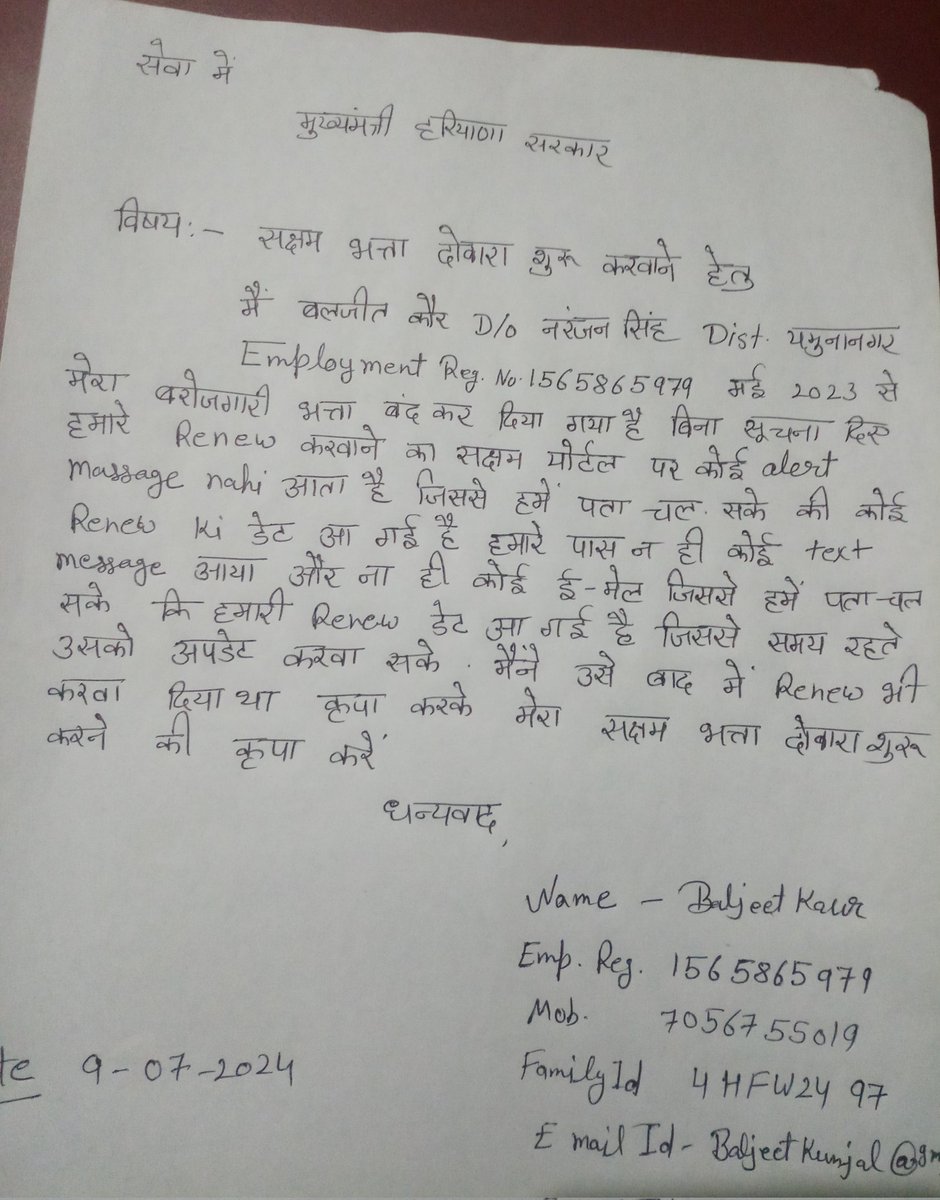 सेवा में
मुख्यमंत्री हरियाणा सरकार
विषय:- सक्षम भत्ता दोबारा शुरू करवाने हेतु
मैं बलजीत कौर D/o नरंजन सिंह Dist. यमुनानगर
Employment Reg. No. 1565865979 मई 2023 से
मेरा बरोजगारी भत्ता बंद कर दिया गया है बिना सूचना दिए
हमारे Renew करवाने का सक्षम पोर्टल पर कोई alert
massage nahi आता है जिससे हमें पता चल. सके की कोई
Renew ki डेट आ गई है हमारे पास न ही कोई text
message आया और ना ही कोई ई-मेल जिससे हमें पता-चल
सके कि हमारी Renew डेट आ गई है जिससे समय रहते
उसको अपडेट करवा सके. मैंने उसे बाद में Renew भी
करवा दिया था कृपा करके मेरा सक्षम भत्ता दोबारा शुरू
करने की कृपा करें
धन्यवाद,
Name - Baljeet Kaur
Emp. Reg. 1565865979
Mob. 7056755019
te 9-07-2024
Family Id 4HFW2497
E mail Id - Baljeet Kunjal @gm